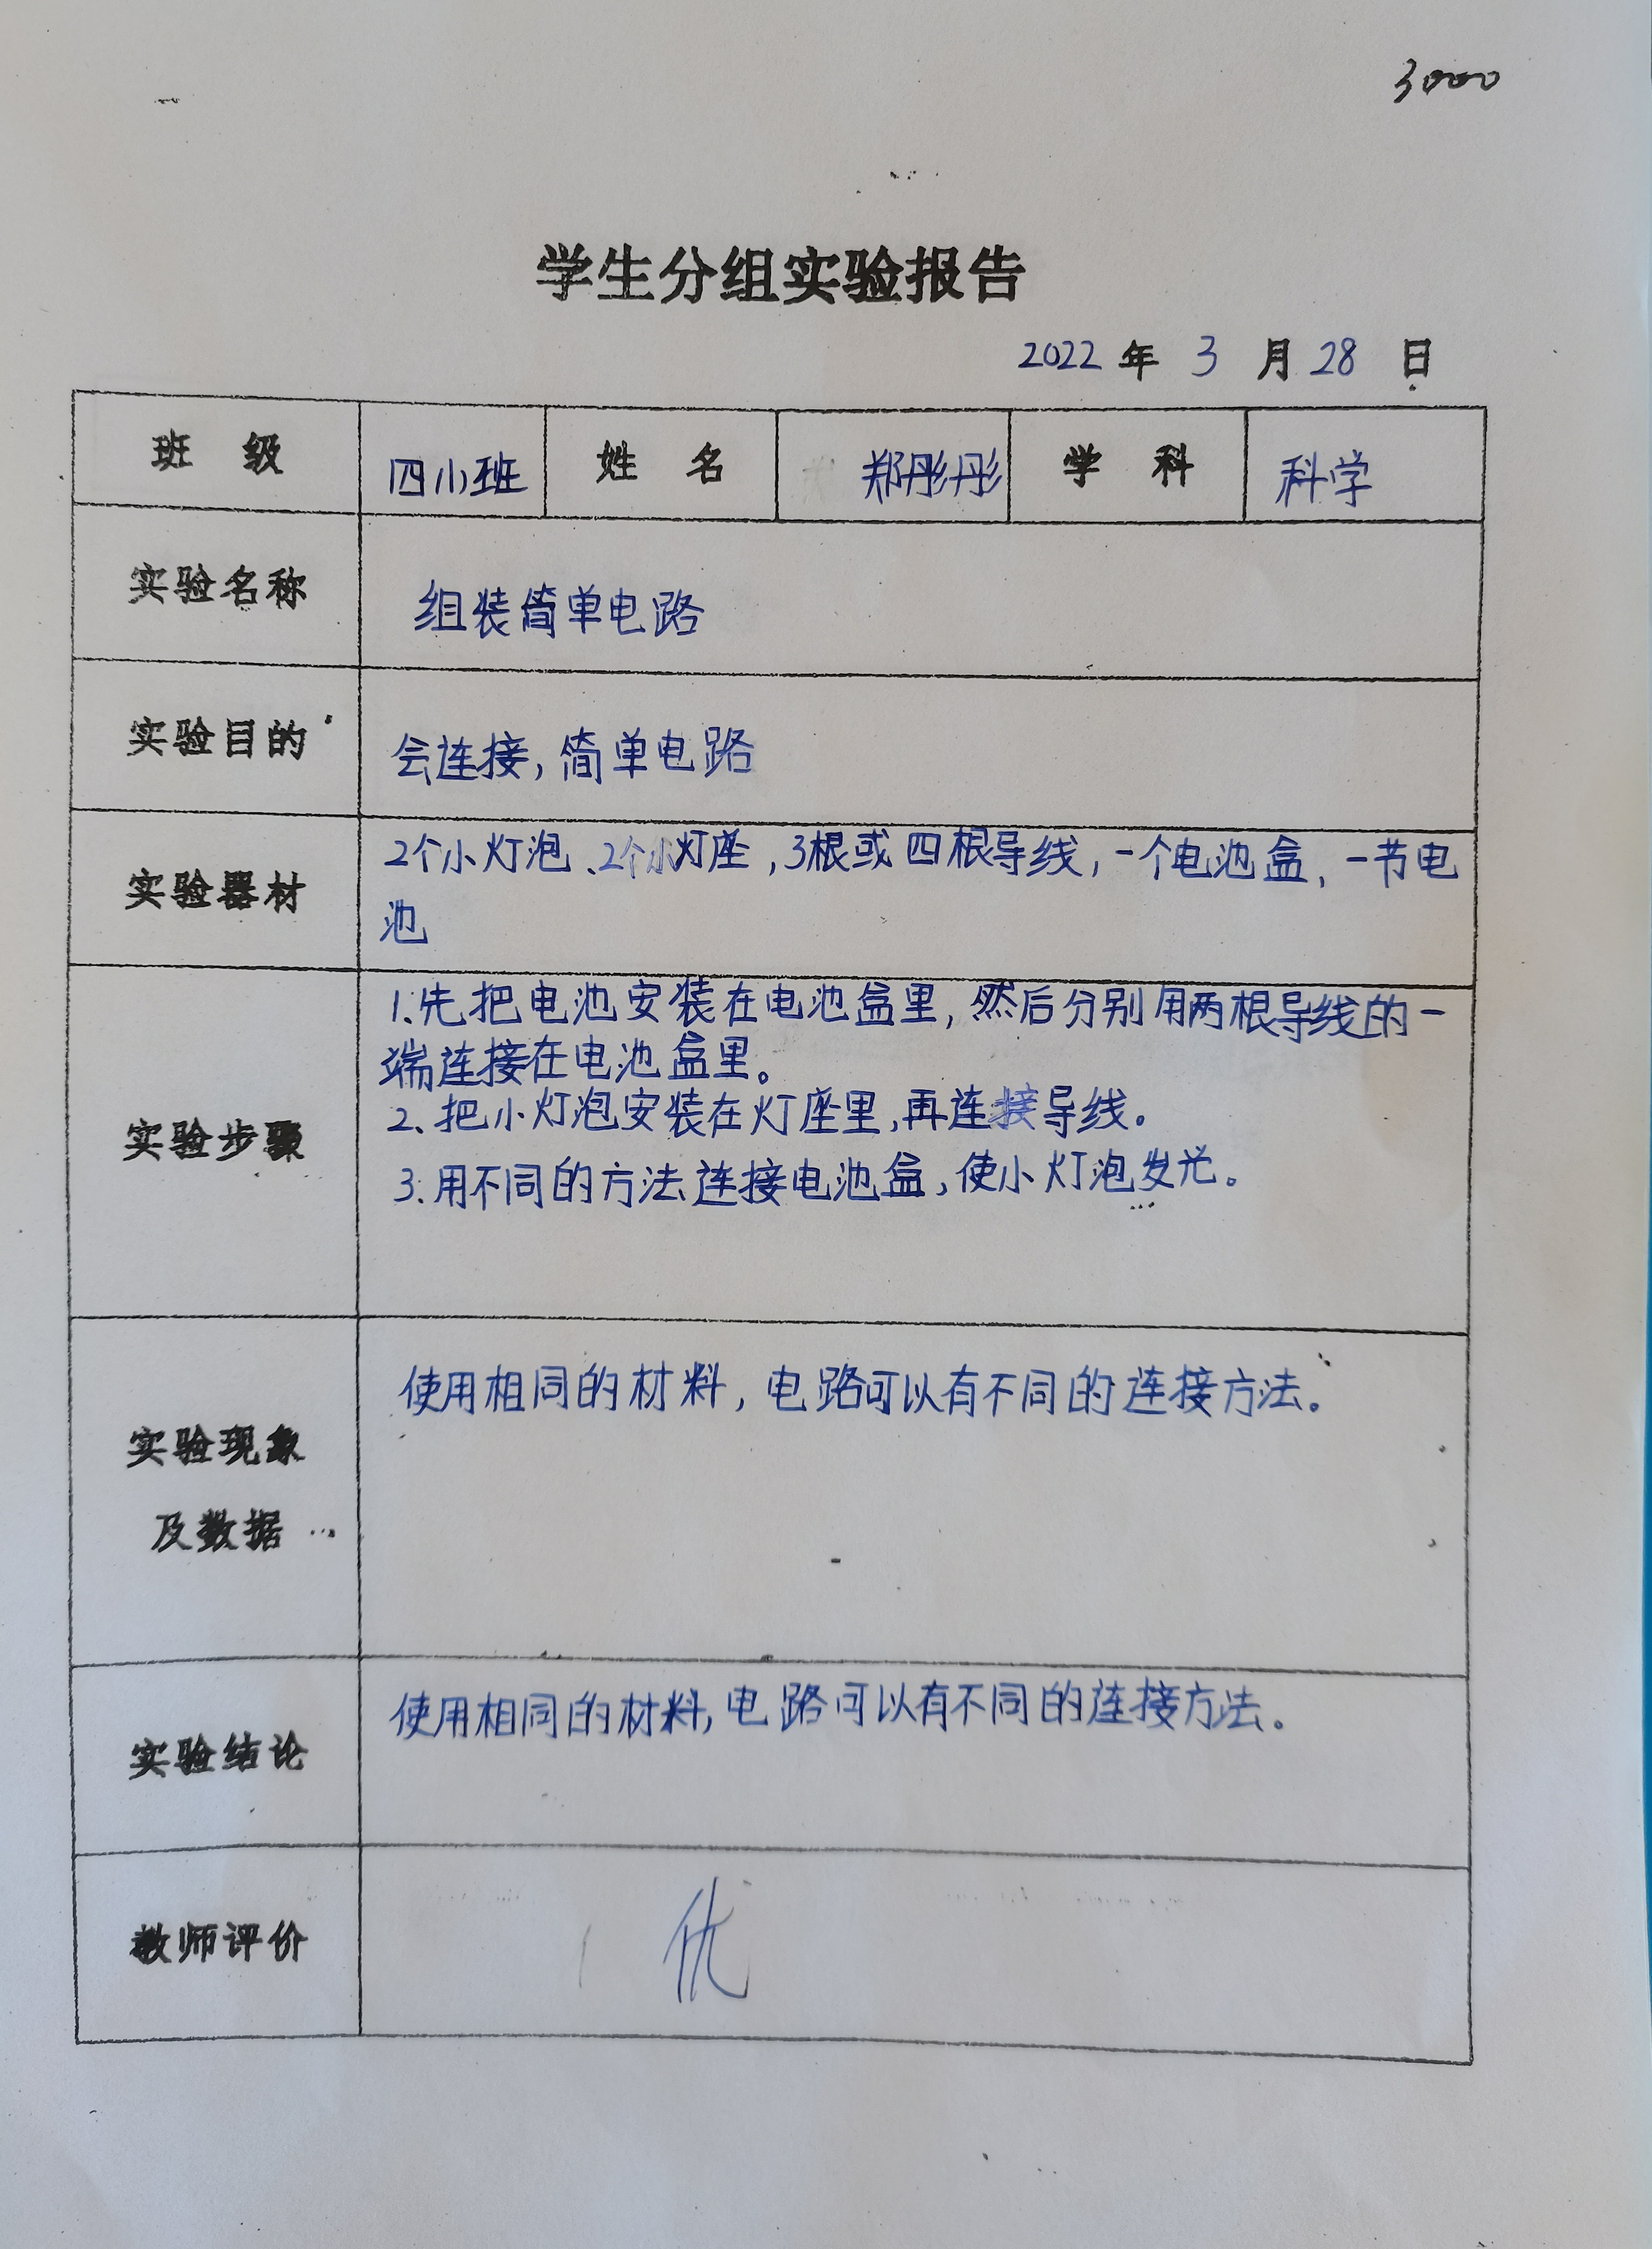 3000
学生分组实验报告
2022 年 3 月 28 日
班 级 四小班 姓 名 郑彤彤 学 科 科学
实验名称 组装简单电路
实验目的 会连接,简单电路
实验器材 2个小灯泡、2个小灯座,3根或四根导线,一个电池盒、一节电
池
实验步骤 1.先把电池安装在电池盒里,然后分别用两根导线的一
端连接在电池盒里。
2、把小灯泡安装在灯座里,再连接导线。
3.用不同的方法连接电池盒,使小灯泡发光。
实验现象
及数据
使用相同的材料,电路可以有不同的连接方法。
实验结论 使用相同的材料,电路可以有不同的连接方法。
教师评价 优